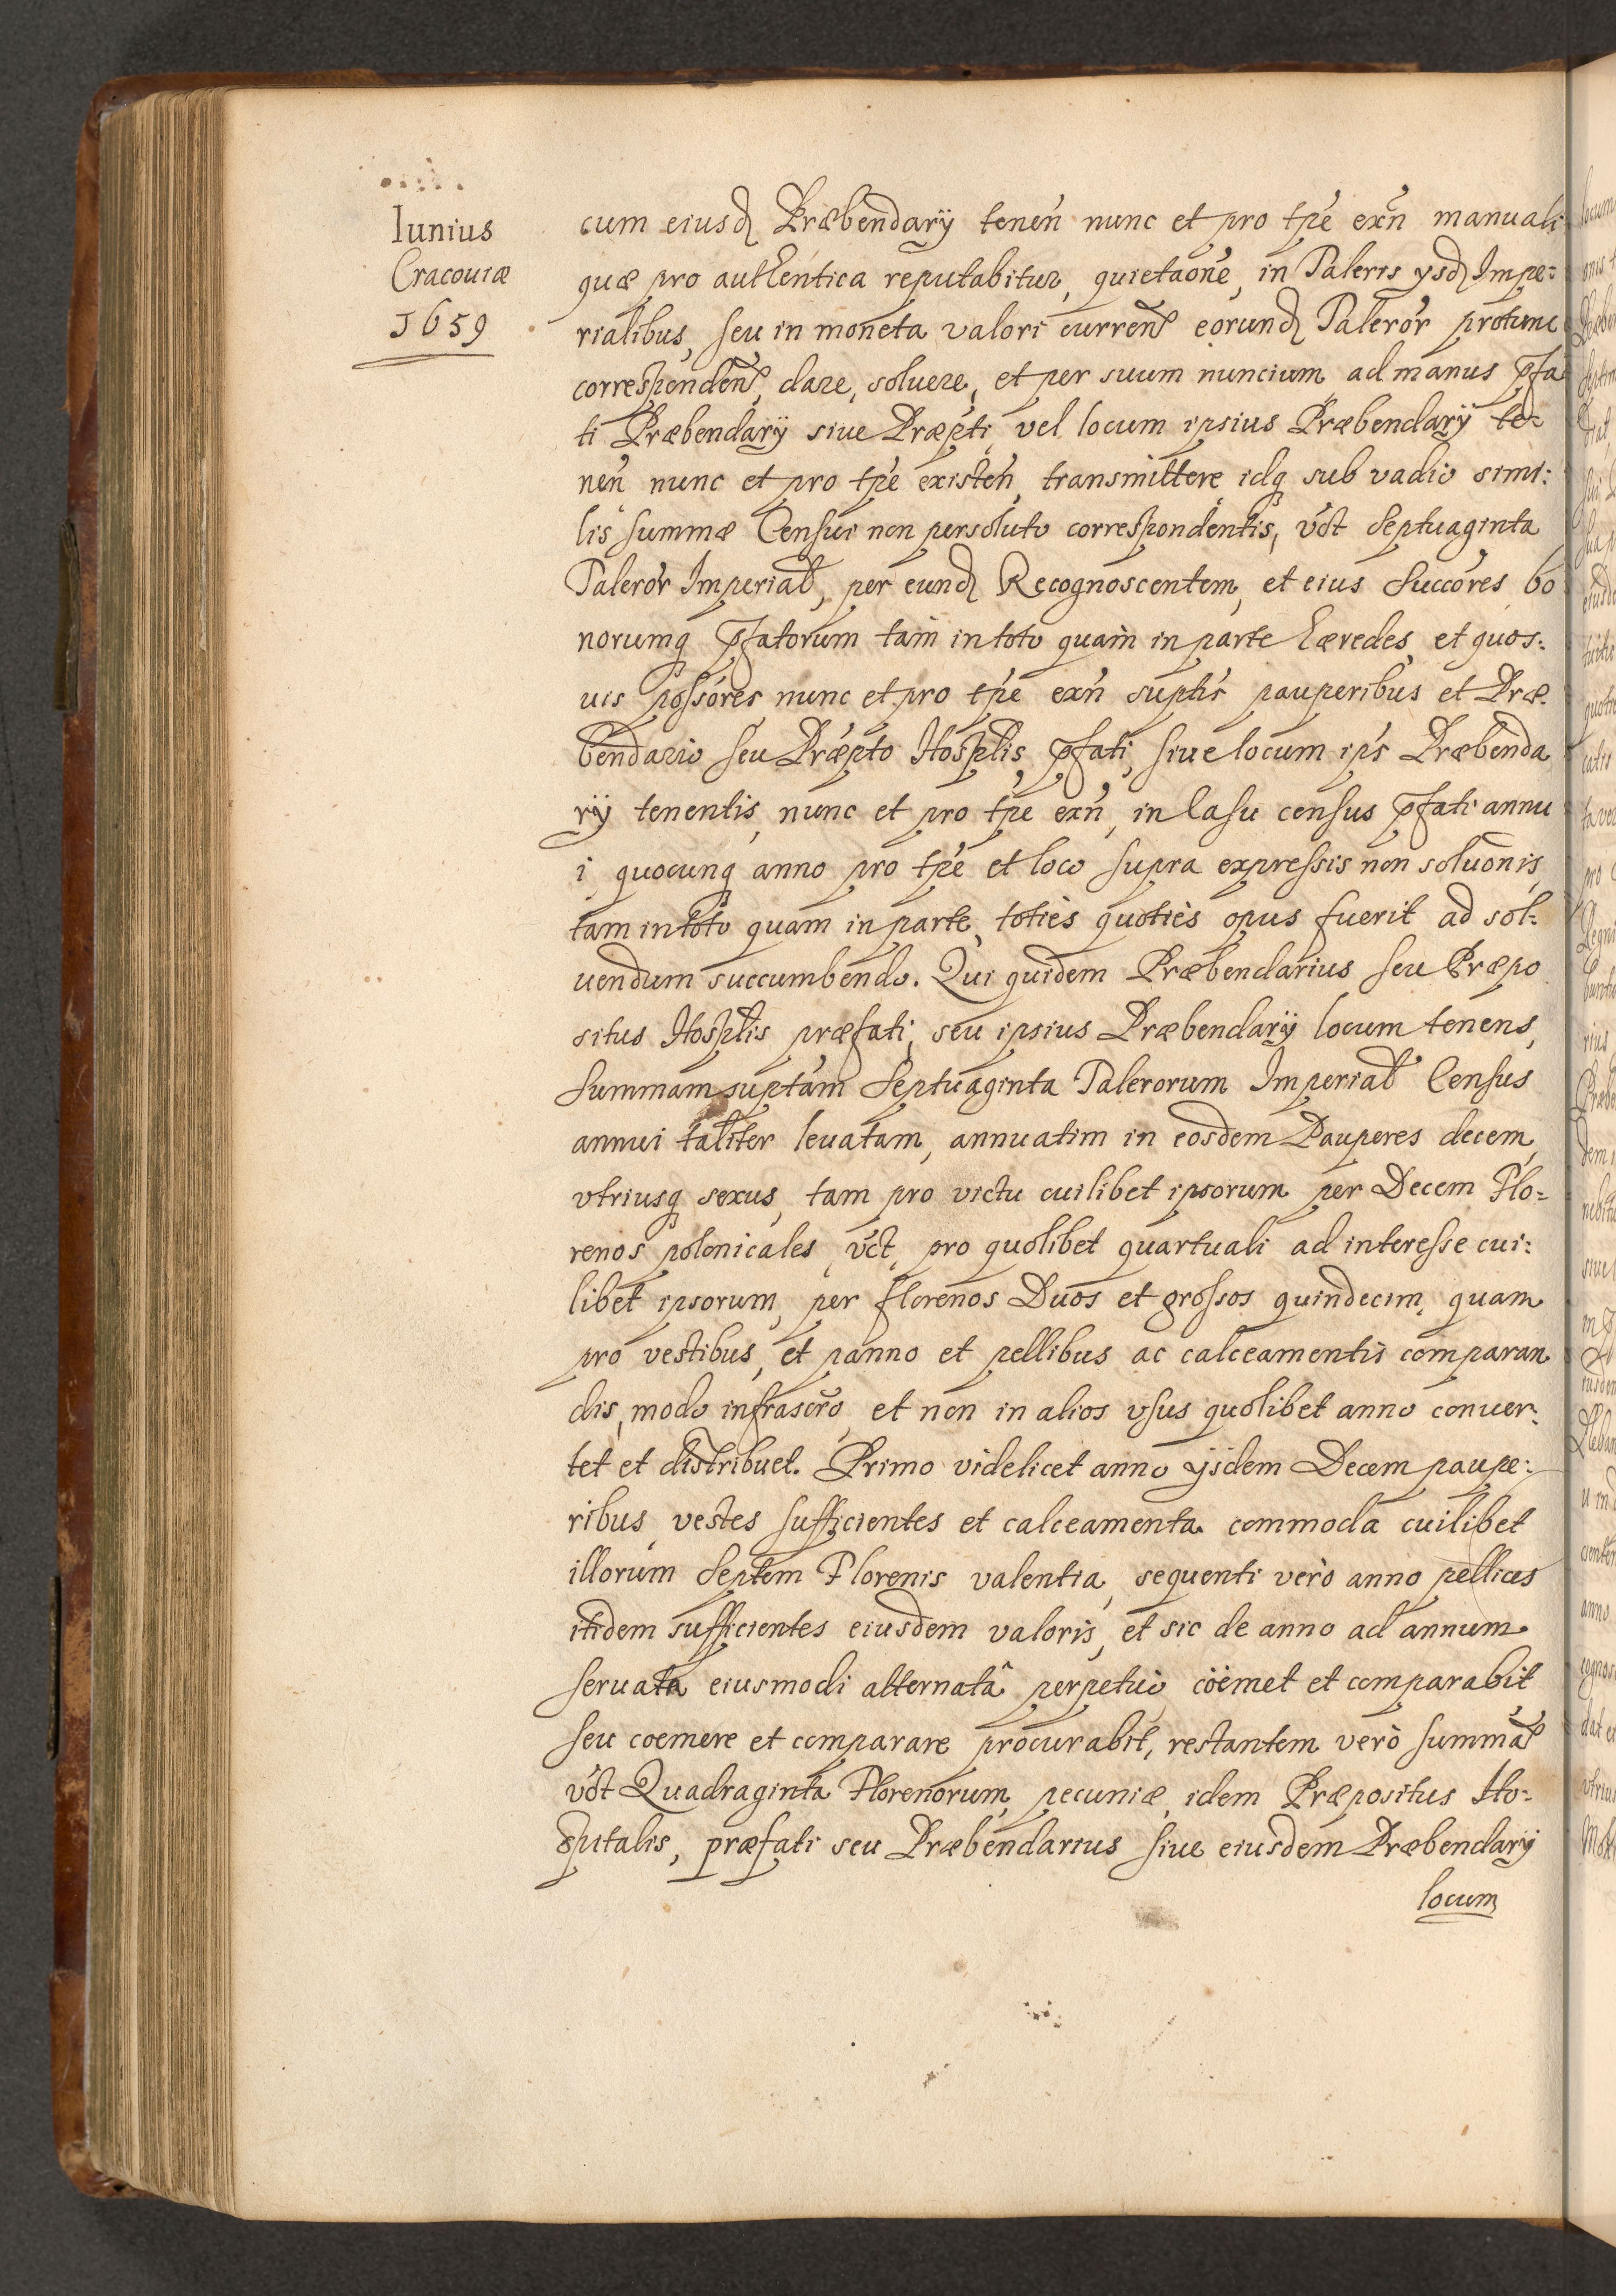 Iunius
Cracouiæ
1659
cum eiusd Præbendarÿ teneñ nunc et pro tpe exñ manuali
quæ pro authentica reputabitur, quietaone, in Taleris ysd Impe:
rialibus, seu in moneta valori curren eorund Taleror protunc
corresponden, dare, soluere, et per suum nuncium ad manus pfa
ti Præbendarÿ siue Præpti vel locum ipsius Præbendarÿ te:
neñ nunc et pro tpe existeñ, transmittere idq sub vadio simi:
lis summæ Censui non persoluto correspondentis, vct Septuaginta
Taleror Imperial, per eund Recognoscentem, et eius Succores bo
norumq pfatorum tam in toto quam in parte hæredes, et quos:
uis possores nunc et pro tpe exñ suptis pauperibus et Præ:
bendario seu Præpto Hosplis pfati, siue locum ips Præbenda
rÿ tenentis, nunc et pro tpe exñ, in Casu census pfati annu
i quocunq anno pro tpe et loco supra expressis non soluonis,
tam in toto quam in parte, toties quoties opus fuerit ad sol:
uendum succumbendo. Qui quidem Præbendarius seu Præpo
situs Hosplis præfati, seu ipsius Præbendarÿ locum tenens,
Summam suptam Septuaginta Talerorum Imperial Census
annui taliter leuatam, annuatim in eosdem Pauperes decem,
vtriusq sexus, tam pro victu cuilibet ipsorum per Decem Flo:
renos polonicales, vct, pro quolibet quartuali ad interesse cui:
libet ipsorum, per florenos Duos et grossos quindecim, quam
pro vestibus, et panno et pellibus ac calceamentis comparan
dis, modo infrascro, et non in alios vsus quolibet anno conuer:
tet et distribuet. Primo videlicet anno ÿsdem Decem paupe:
ribus, vestes sufficientes et calceamenta commoda cuilibet
illorum Septem Florenis valentia, sequenti verò anno pellices
itidem sufficientes eiusdem valoris, et sic de anno ad annum
seruata eiusmodi alternatâ perpetuò coëmet et comparabit
seu coemere et comparare procurabit, restantem verò summã
vct Quadraginta Florenorum, pecuniæ, idem Præpositus Ho:
spitalis, præfati seu Præbendarius siue eiusdem Præbendarÿ
locum